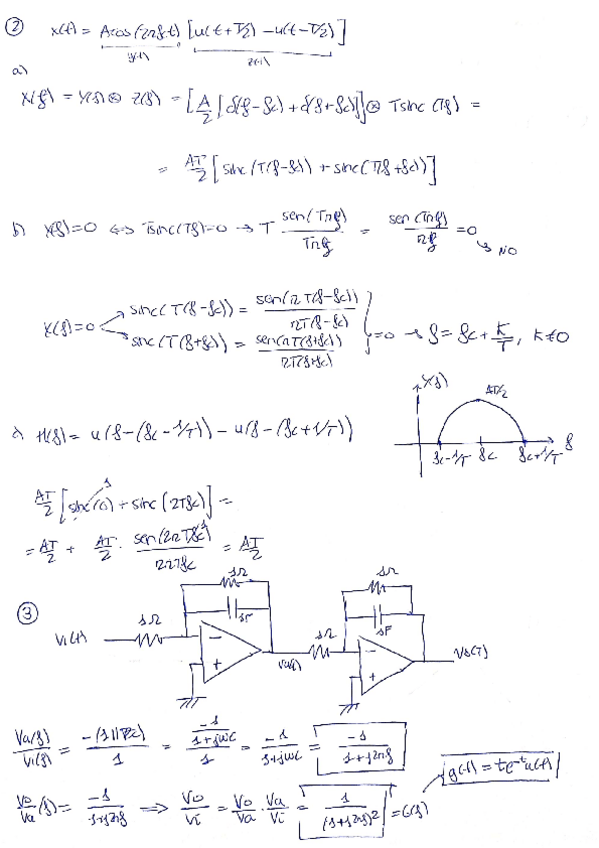 ② x(t) = A cos(2πft) [u(t+T/2) - u(t-T/2)]
y(t) z(t)
a)
X(f) = Y(f) ⊗ Z(f) = [A/2 [δ(f-fc) + δ(f+fc)]] ⊗ T sinc(Tf) =
= AT/2 [sinc(T(f-fc)) + sinc(T(f+fc))]
b) X(f)=0 ⇔ Tsinc(Tf)=0 → T sen(Tπf)/Tπf = sen(Tπf)/πf = 0
↘ NO
X(f)=0 → sinc(T(f-fc)) = sen(πT(f-fc))/πT(f-fc)
→ sinc(T(f+fc)) = sen(πT(f+fc))/πT(f+fc) } =0 → f = fc + K/T, K≠0
c) H(f) = u(f-(fc-1/T)) - u(f-(fc+1/T))
X(f)
AT/2
fc-1/T fc fc+1/T f
AT/2 [sinc(0) + sinc(2Tfc)] =
1
= AT/2 + AT/2 · sen(2πTfc)/2πTfc = AT/2
③
1Ω 1Ω
1F 1F
Vi(t) 1Ω - + Va(t) 1Ω - + Vo(t)
Va(f)/Vi(f) = -(1||Zc)/1 = (-1/(1+jωC))/1 = -1/(1+jωC) = -1/(1+j2πf)
g(t) = te^-t u(t)
Vo/Va (f) = -1/(1+j2πf) ⇒ Vo/Vi = Vo/Va · Va/Vi = 1/(1+j2πf)² = G(f)